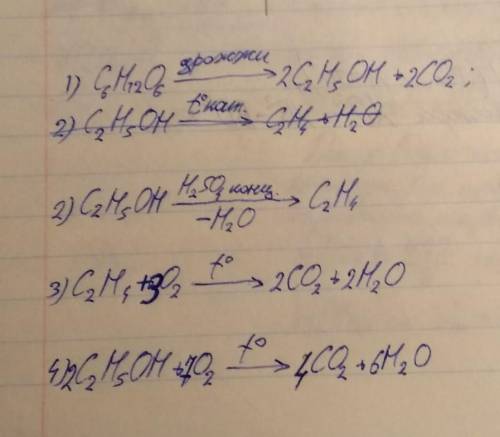 1) C₆H₁₂O₆ дрожжи → 2C₂H₅OH + 2CO₂;
2) C₂H₅OH t° кат. → C₂H₄ + H₂O
2) C₂H₅OH H₂SO₄ конц. → −H₂O C₂H₄
3) C₂H₄ + 3O₂ t° → 2CO₂ + 2H₂O
4) 2C₂H₅OH + 7O₂ t° → 4CO₂ + 6H₂O